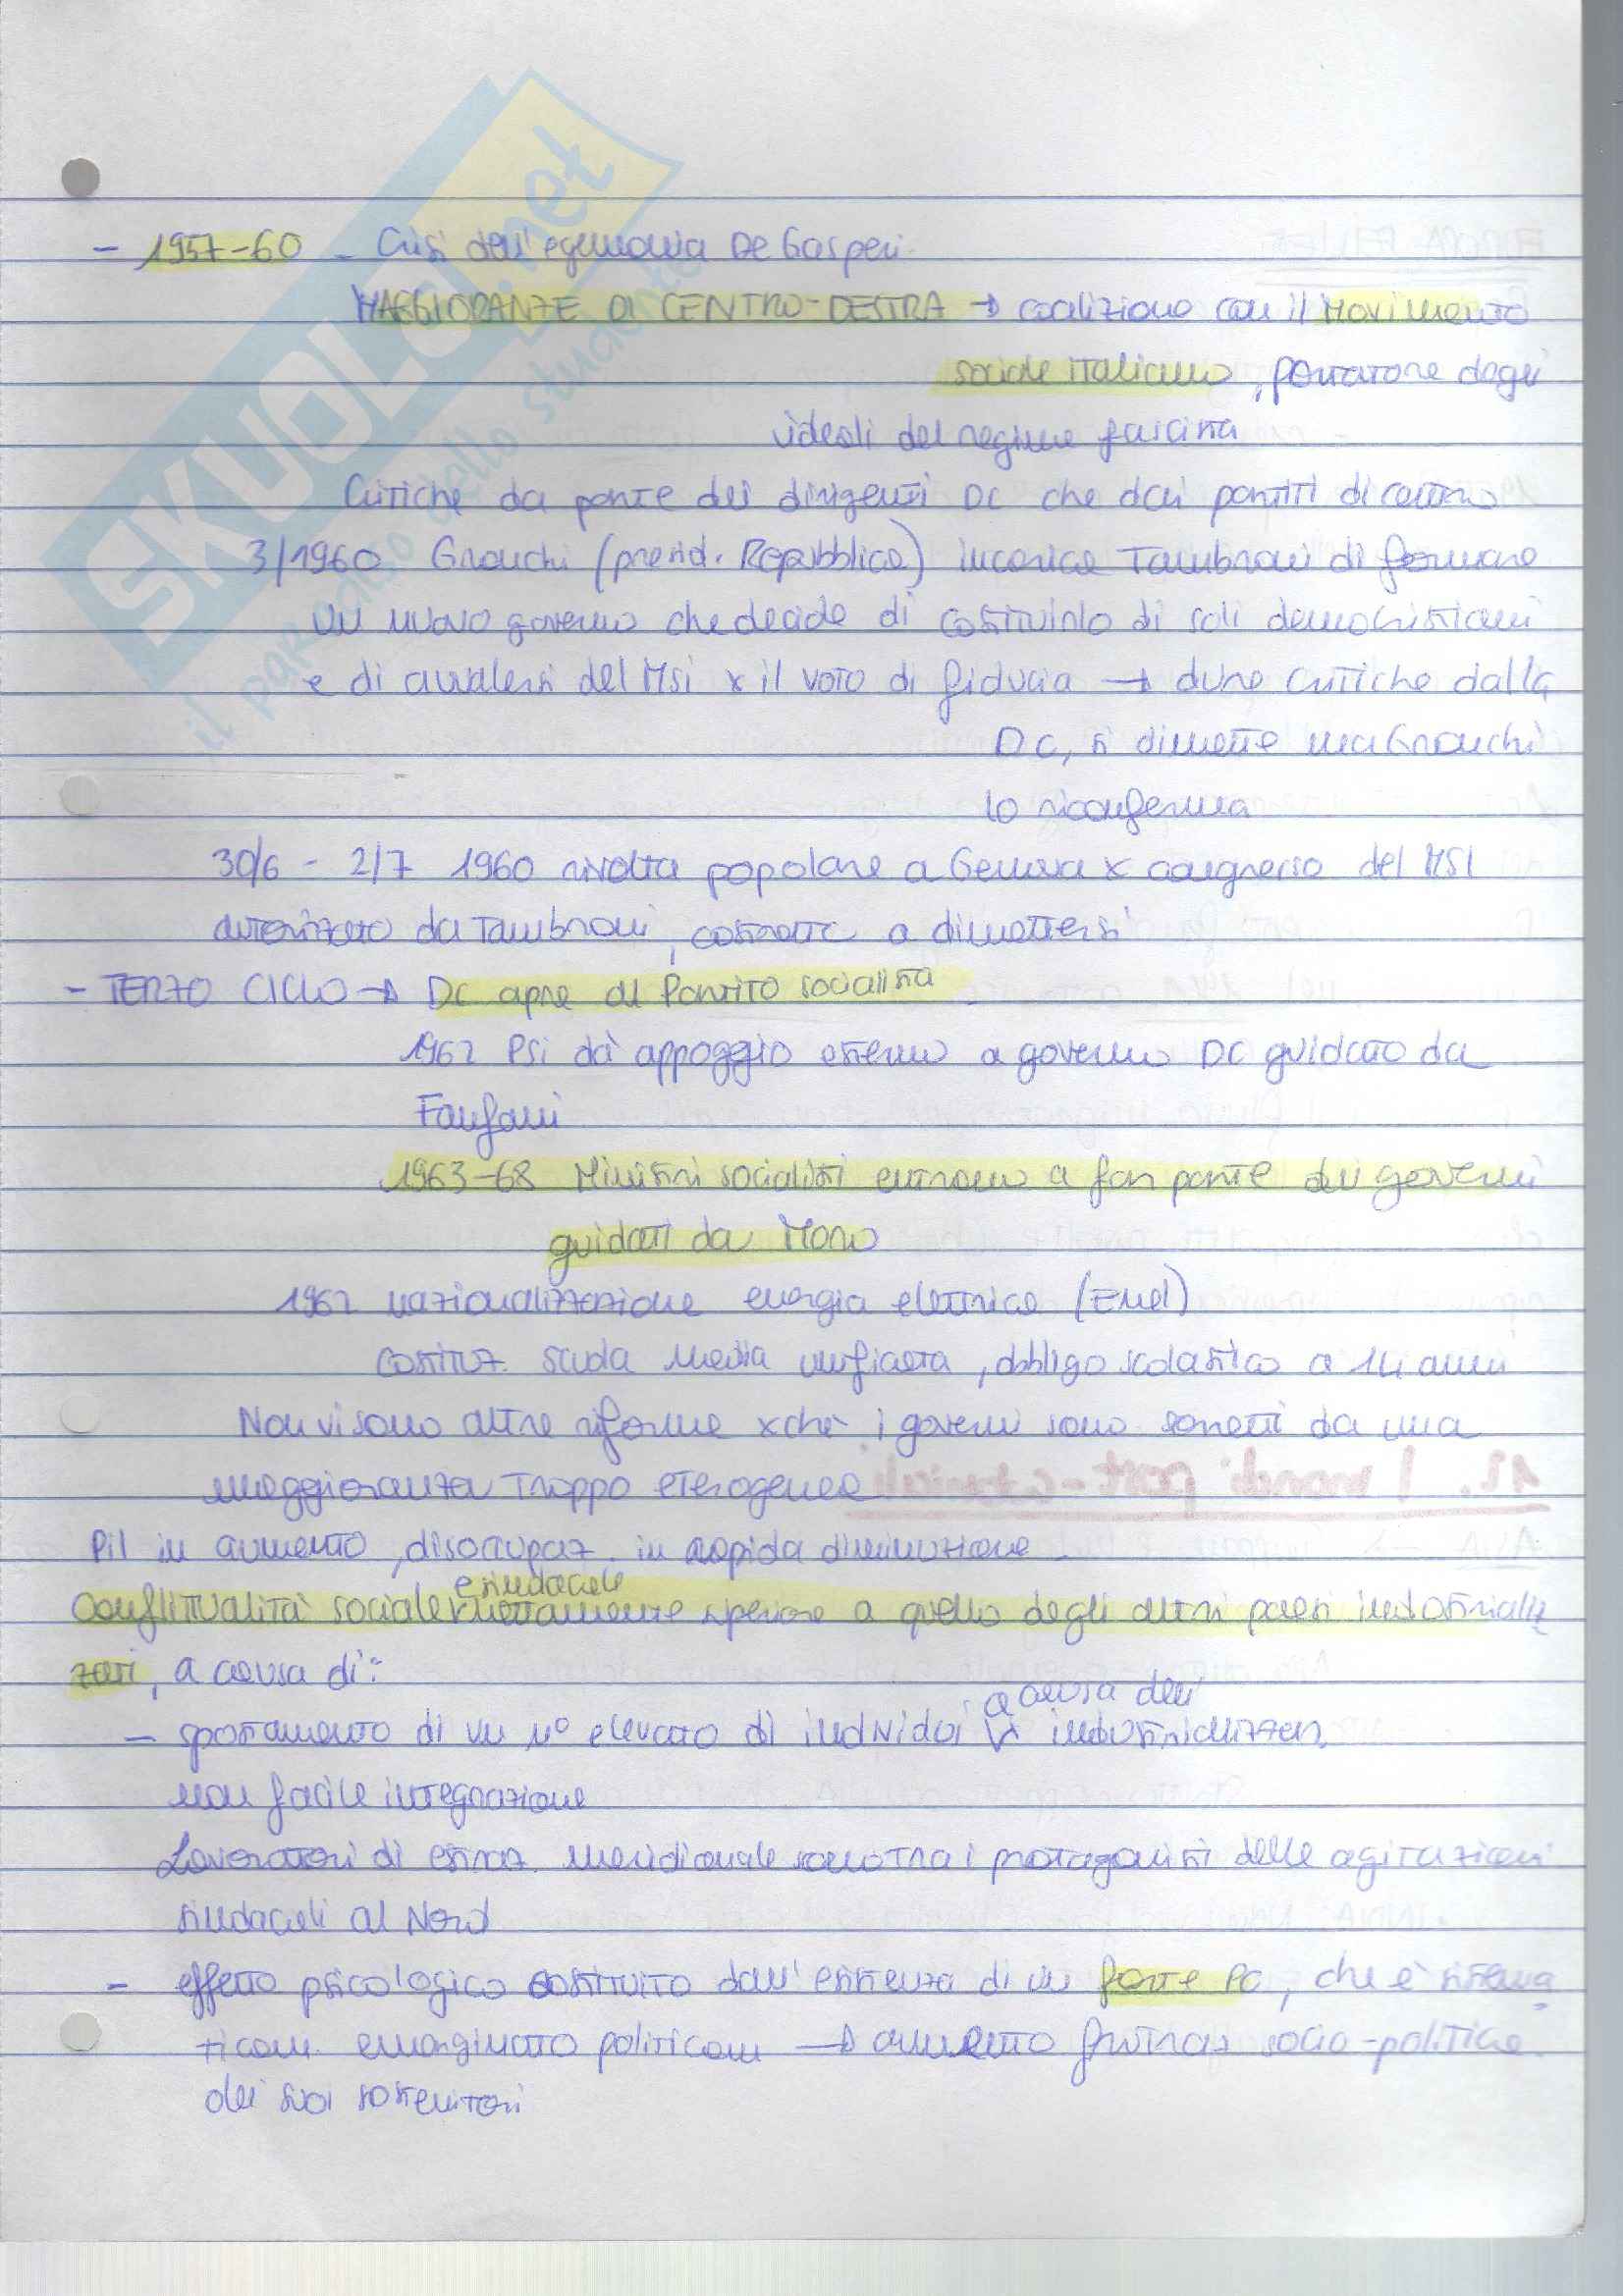 SKUOLA.net
il paradiso dello studente
- 1957-60 - Crisi dell'egemonia De Gasperi.
MAGGIORANZE DI CENTRO-DESTRA → coalizione con il Movimento
sociale italiano, portatore degli
ideali del regime fascista
Critiche da parte dei dirigenti DC che dai partiti di centro
3/1960 Gronchi (presid. Repubblica) incarica Tambroni di formare
un nuovo governo che decide di costituirlo di soli democristiani
e di avvalersi del Msi x il voto di fiducia → dure critiche dalla
Dc, si dimette ma Gronchi
lo riconferma
30/6 - 2/7 1960 rivolta popolare a Genova x congresso del MSI
autorizzato da Tambroni, costretto a dimettersi
- TERZO CICLO → Dc apre al Partito socialista
1962 Psi dà appoggio esterno a governo DC guidato da
Fanfani
1963-68 Ministri socialisti entrano a far parte dei governi
guidati da Moro
1962 nazionalizzazione energia elettrica (Enel)
costituz. scuola media unificata, obbligo scolastico a 14 anni
Non vi sono altre riforme xchè i governi sono sorretti da una
maggioranza troppo eterogenea
Pil in aumento, disoccupaz. in rapida diminuzione
Conflittualità sociale e sindacale nettamente superiore a quello degli altri paesi industrializ
zati, a causa di:
- spostamento di un n° elevato di individui a causa dell' industrializzaz.
non facile integrazione
Lavoratori di estraz. meridionale sono tra i protagonisti delle agitazioni
sindacali al Nord
- effetto psicologico costituito dall'esistenza di un forte PC, che è sistema
ticam. emarginato politicam → aumento frustraz socio-politica
dei suoi sostenitori